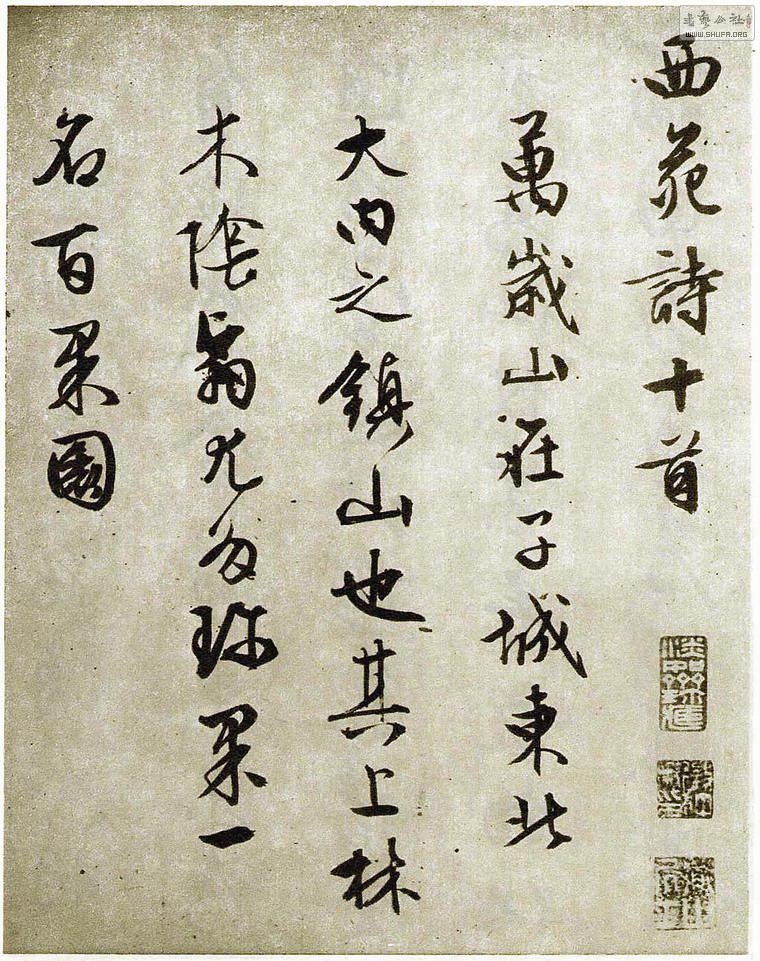 書藝公社
WWW.SHUFA.ORG
西苑詩十首
萬歲山在子城東北
大内之鎮山也其上林
木陰翳尤多珎果一
名百果園